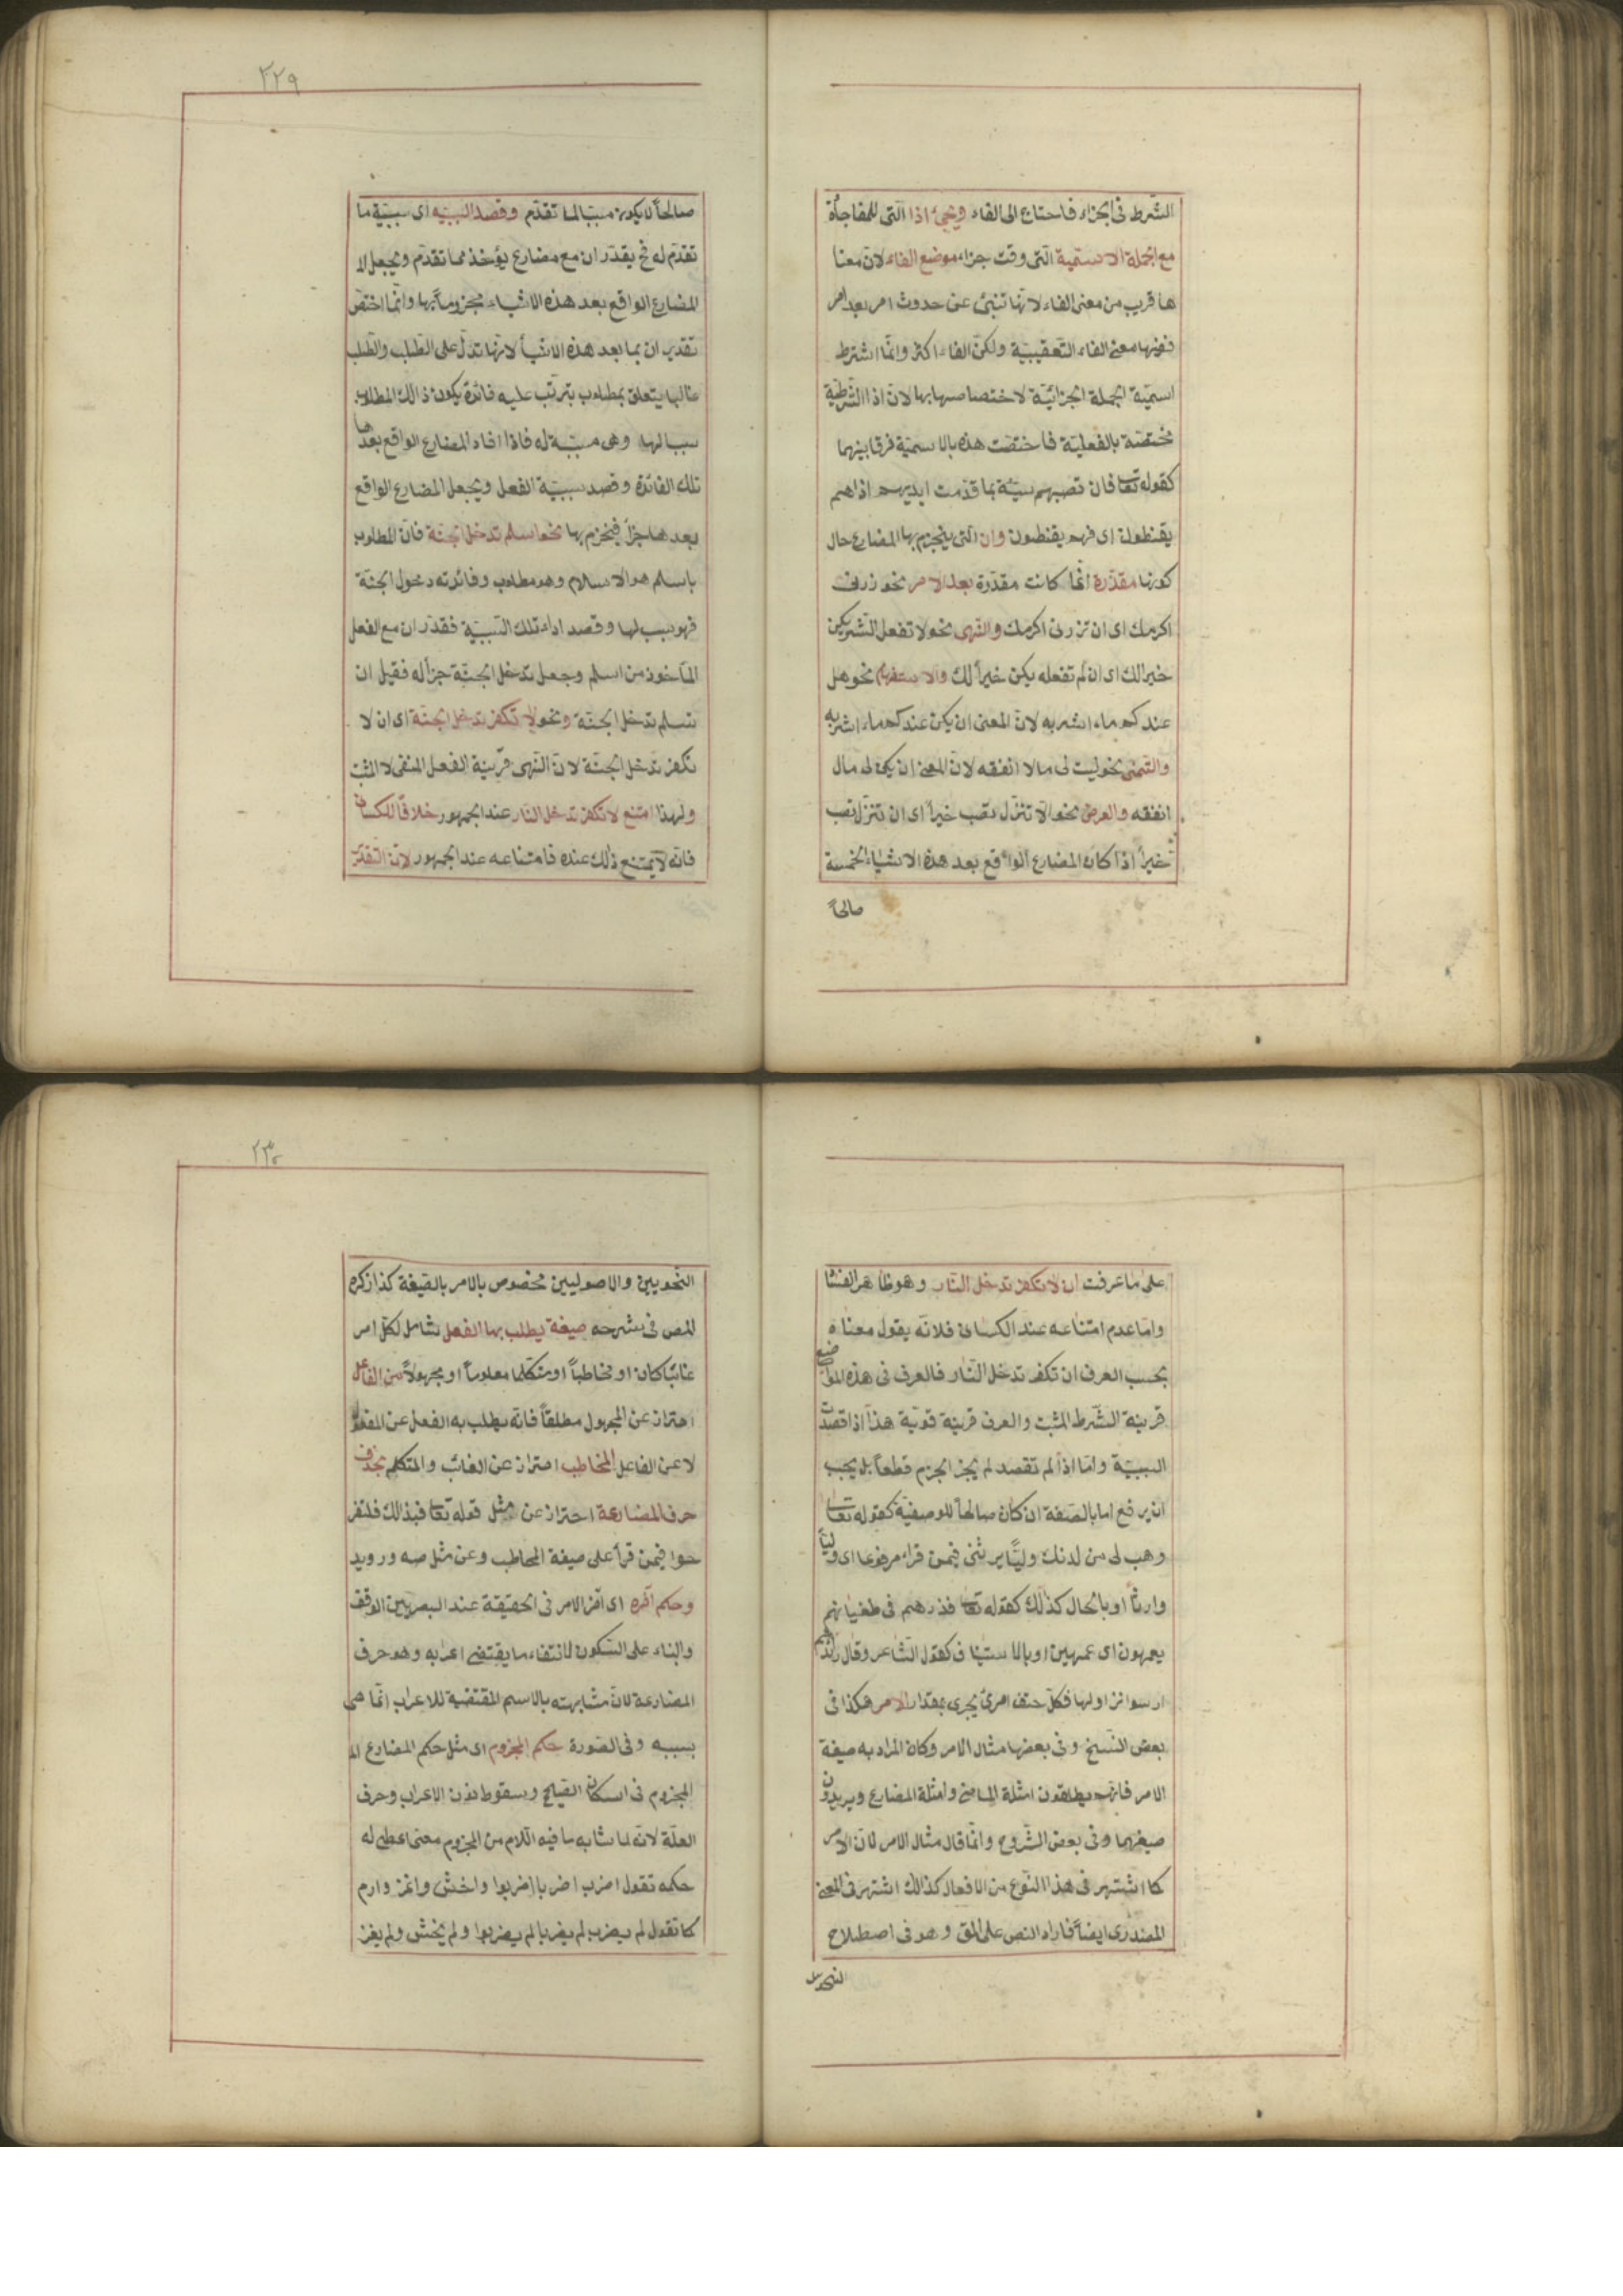 الشرط فى الجزاء فاحتاج الى الفاء ويجئ اذا التى للمفاجأة
مع الجملة الاسمية التى وقت جزاء موضع الفاء لان معنا
ها قريب من معنى الفاء لانها تنبئ عن حدوث امر بعد امر
ففيها معنى الفاء التعقيبية ولكن الفاء اكثر وانما اشترط
اسمية الجملة الجزائية لاختصاصها بها لان اذا الشرطية
مختصة بالفعلية فاختصت هذه بالاسمية فرقا بينهما
كقوله تعا فان تصبهم سيئة بما قدمت ايديهم اذا هم
يقنطون اى فهم يقنطون وان التى ينجزم بها المضارع حال
كونها مقدرة انما كانت مقدرة بعد الامر نحو زرنى
اكرمك اى ان تزرنى اكرمك والنهى نحو لا تفعل الشر يكن
خيرا لك اى ان لم تفعله يكن خيرا لك والاستفهام نحو هل
عندكم ماء اشربه لان المعنى ان يكن عندكم ماء اشربه
والتمنى نحو ليت لى مالا انفقه لان المعنى ان يكن لى مال
انفقه والعرض نحو الا تنزل تصب خيرا اى ان تنزل تصب
خيرا اذا كان المضارع الواقع بعد هذه الاشياء الخمسة
صالحا
٢٢٩
صالحا لان يكون مسببا لما تقدم وقصد السببية اى سببية ما
تقدم له فح يقدر ان مع مضارع يؤخذ مما تقدم ويجعل
المضارع الواقع بعد هذه الاشياء مجزوما بها وانما اختص
تقدير ان بما بعد هذه الاشياء لانها تدل على الطلب والطلب
غالبا يتعلق بمطلوب يترتب عليه فائدة يكون ذالك المطلوب
سببا لها وهى مسببة له فاذا افاد المضارع الواقع بعدها
تلك الفائدة وقصد سببية الفعل ويجعل المضارع الواقع
بعدها جزأ فينجزم بها نحو اسلم تدخل الجنة فان المطلوب
باسلم هو الاسلام وهو مطلوب وفائدته دخول الجنة
فهو سبب لها وقصد اداء تلك السببية فقدر ان مع الفعل
المأخوذ من اسلم وجعل تدخل الجنة جزأ له فقيل ان
تسلم تدخل الجنة ونحو لا تكفر تدخل الجنة اى ان لا
تكفر تدخل الجنة لان النهى قرينة الفعل المنفى لا المثبت
ولهذا امتنع لا تكفر تدخل النار عند الجمهور خلافا للكسائى
فانه لا يمتنع ذلك عنده فامتناعه عند الجمهور لان التقدير
على ما عرفت ان لا تكفر تدخل النار وهو ظاهر الفسا
واما عدم امتناعه عند الكسائى فلانه يقول معناه
بحسب العرف ان تكفر تدخل النار فالعرف فى هذه المواضع
قرينة الشرط المثبت والعرف قرينة قوية هذا اذا قصدت
السببية واما اذا لم تقصد لم يجز الجزم قطعا بل يجب
ان يرفع اما بالصفة ان كان صالحا للوصفية كقوله تعا
وهب لى من لدنك وليا يرثنى فيمن قراء مرفوعا اى وليا
وارثا او بالحال كذلك كقوله تعا فذرهم فى طغيانهم
يعمهون اى عمهين او بالاستيناف كقول الشاعر وقال رائدهم
ارسوا نزاولها فكل حتف امرئ يجرى بمقدار الامر هكذا فى
بعض النسخ وفى بعضها مثال الامر وكان المراد به صيغة
الامر فانهم يطلقون امثلة الماضى وامثلة المضارع ويريدون
صيغهما وفى بعض الشروح وانما قال مثال الامر لان الامر
كما اشتهر فى هذا النوع من الافعال كذالك اشتهر فى المعنى
المصدرى ايضا فاراد النص على المق وهو فى اصطلاح
النحويين
٢٣٠
النحويين والاصوليين مخصوص بالامر بالصيغة كذا ذكره
المص فى شرحه صيغة يطلب بها الفعل شامل لكل امر
غائبا كان او مخاطبا او متكلما معلوما او مجهولا من الفاعل
احتراز عن المجهول مطلقا فانه يطلب به الفعل عن المفعول
لا عن الفاعل المخاطب احتراز عن الغائب والمتكلم بحذف
حرف المضارعة احتراز عن مثل قوله تعا فبذالك فلتفر
حوا فيمن قرأ على صيغة المخاطب وعن مثل صه ورويد
وحكم آخره اى آخر الامر فى الحقيقة عند البصريين الوقف
والبناء على السكون لانتفاء ما يقتضى اعرابه وهو حرف
المضارعة لان مشابهته بالاسم المقتضية للاعراب انما هى
بسببه وفى الصورة حكم المجزوم اى مثل حكم المضارع
المجزوم فى اسكان الصحيح وسقوط نون الاعراب وحرف
العلة لانه لما شابه ما فيه اللام من المجزوم معنى اعطى له
حكمه تقول اضرب اضربا اضربوا واخش واغز وارم
كما تقول لم يضرب لم يضربا لم يضربوا ولم يخش ولم يغز